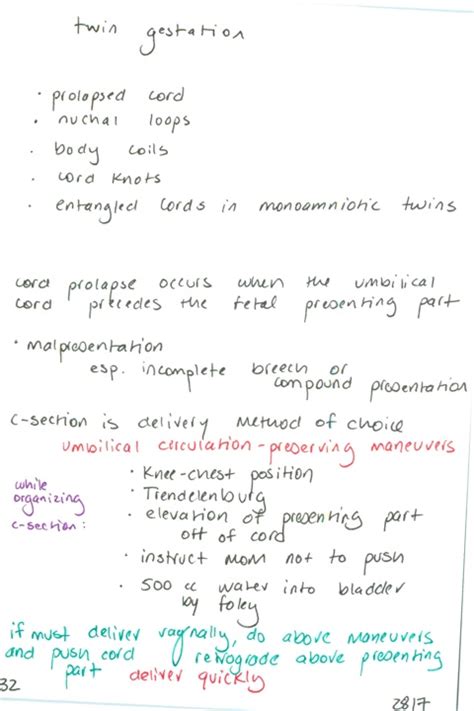 twin gestation
· prolapsed cord
· nuchal loops
· body coils
· cord knots
· entangled cords in monoamniotic twins
cord prolapse occurs when the umbilical
cord precedes the fetal presenting part
· malpresentation
esp. incomplete breech or
compound presentation
C-section is delivery method of choice
umbilical circulation-preserving maneuvers
while
organizing
c-section:
· Knee-chest position
· Trendelenburg
· elevation of presenting part
off of cord
· instruct mom not to push
· 500 cc water into bladder
by foley
if must deliver vagnally, do above maneuvers
and push cord retrograde above presenting
part deliver quickly
32
2817